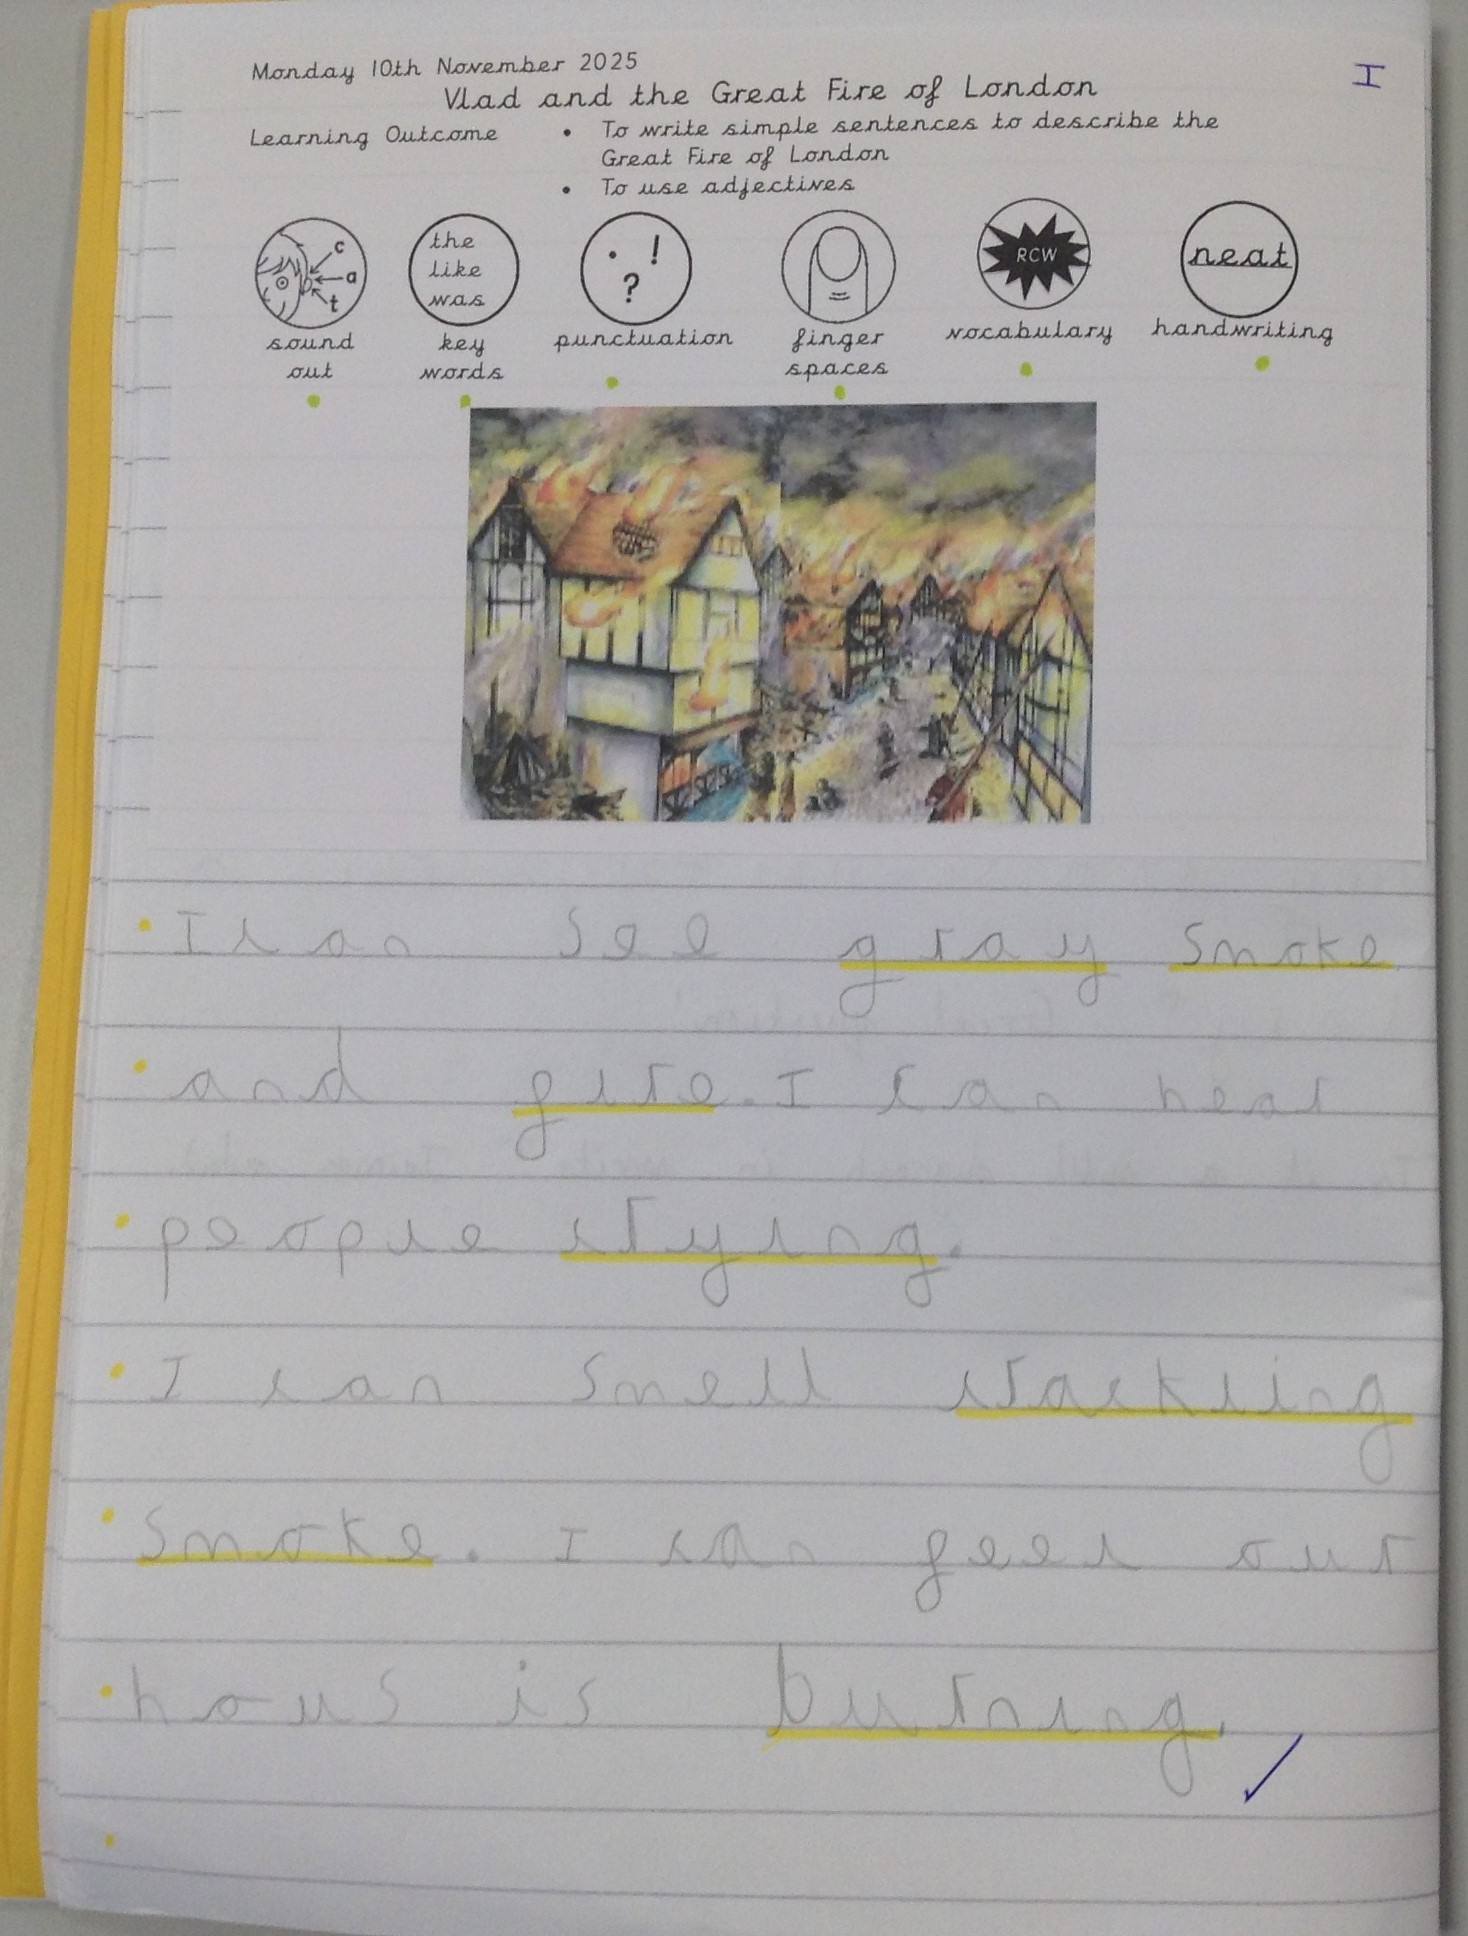 Monday 10th November 2025
I
Vlad and the Great Fire of London
Learning Outcome • To write simple sentences to describe the
Great Fire of London
• To use adjectives
c
a
t
the
like
was
. !
?
RCW
neat
sound out
key words
punctuation
finger spaces
vocabulary
handwriting
I can see gray smoke
and fire. I can hear
people crying.
I can smell crackling
smoke. I can feel our
hous is burning.